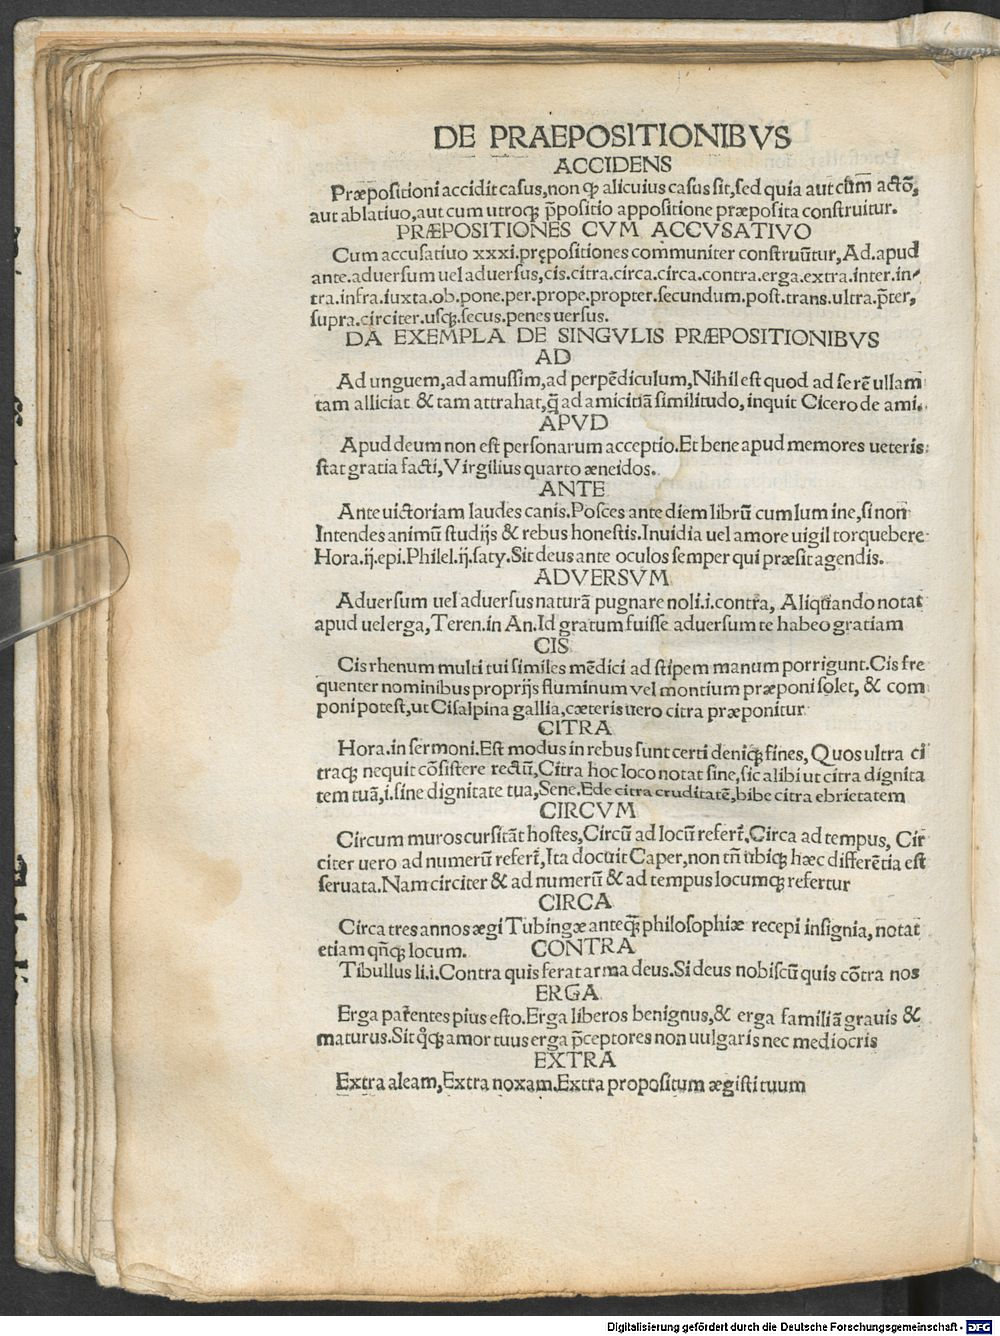 DE PRAEPOSITIONIBVS
ACCIDENS
Præpositioni accidit casus,non ꝙ alicuius casus sit,sed quia aut cũm actõ,
aut ablatiuo,aut cum utroqꝫ p̄positio appositione præposita construitur.
PRÆPOSITIONES CVM ACCVSATIVO
Cum accusatiuo xxxi.prępositiones communiter construũtur,Ad.apud
ante.aduersum uel aduersus,cis.citra.circa.circa.contra.erga.extra.inter.in-
tra.infra.iuxta.ob.pone.per.prope.propter.secundum.post.trans.ultra.p̄ter,
supra.circiter.usqꝫ.secus.penes uersus.
DA EXEMPLA DE SINGVLIS PRÆPOSITIONIBVS
AD
Ad unguem,ad amussim,ad perpēdiculum,Nihil est quod ad se rē ullam
tam alliciat & tam attrahat,q̃ ad amicitiã similitudo,inquit Cicero de ami.
APVD
Apud deum non est personarum acceptio.Et bene apud memores ueteris
stat gratia facti,Virgilius quarto æneidos.
ANTE
Ante uictoriam laudes canis.Posces ante diem librũ cum lum ine,si non
Intendes animũ studijs & rebus honestis.Inuidia uel amore uigil torquebere
Hora.ij.epi.Philel.ij.saty.Sit deus ante oculos semper qui præsit agendis.
ADVERSVM
Aduersum uel aduersus naturã pugnare noli.i.contra, Aliquando notat
apud uel erga,Teren.in An.Id gratum fuisse aduersum te habeo gratiam
CIS
Cis rhenum multi tui similes mēdici ad stipem manum porrigunt.Cis fre
quenter nominibus proprijs fluminum vel montium præponi solet, & com
poni potest,ut Cisalpina gallia,cæteris uero citra præponitur
CITRA
Hora.in sermoni.Est modus in rebus sunt certi deniqꝫ fines, Quos ultra ci
traqꝫ nequit cõsistere rectũ,Citra hoc loco notat sine,sic alibi ut citra dignita
tem tuã,i.sine dignitate tua,Sene.Ede citra cruditatē,bibe citra ebrietatem
CIRCVM
Circum muros cursitãt hostes,Circũ ad locũ refert̃.Circa ad tempus, Cir
citer uero ad numerũ refert̃,Ita docuit Caper,non tñ ubiqꝫ hæc differētia est
seruata.Nam circiter & ad numerũ & ad tempus locumqꝫ refertur
CIRCA
Circa tres annos ægi Tubingæ anteq̃ philosophiæ recepi insignia, notat
etiam qñqꝫ locum. CONTRA
Tibullus li.i.Contra quis ferat arma deus.Si deus nobiscũ quis cõtra nos
ERGA
Erga parētes pius esto.Erga liberos benignus,& erga familiã grauis &
maturus.Sit q̊qꝫ amor tuus erga p̄ceptores non uulgaris nec mediocris
EXTRA
Extra aleam,Extra noxam.Extra propositum ægisti tuum
Digitalisierung gefördert durch die Deutsche Forschungsgemeinschaft - DFG